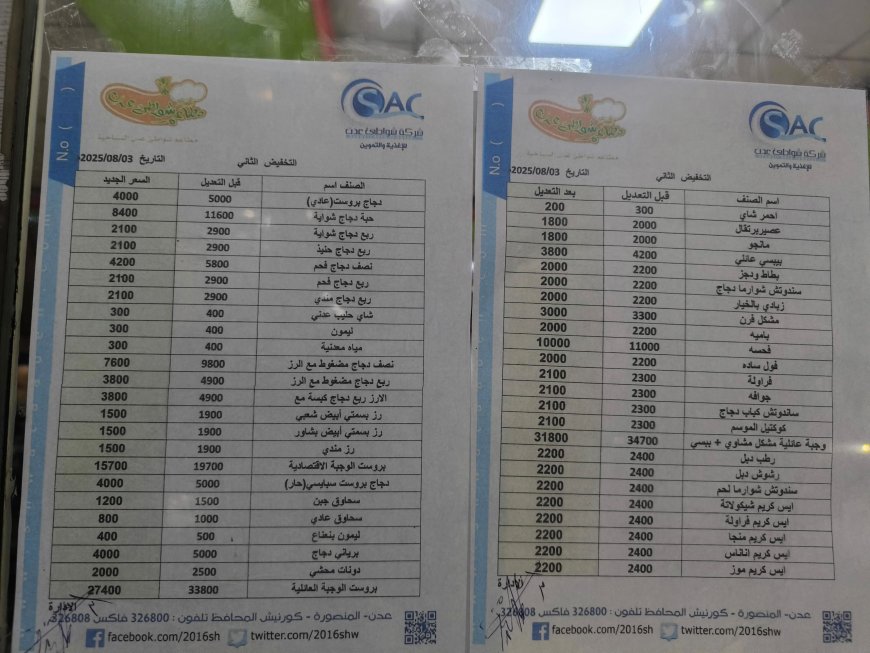 No ( )
مطاعم شواطئ عدن
مطاعم شواطئ عدن السياحية
SAC
شركة شواطئ عدن
للأغذية والتموين
التخفيض الثاني التاريخ 2025/08/03
الصنف اسم قبل التعديل السعر الجديد
دجاج بروست(عادي) 5000 4000
حبة دجاج شواية 11600 8400
ربع دجاج شواية 2900 2100
ربع دجاج حنيذ 2900 2100
نصف دجاج فحم 5800 4200
ربع دجاج فحم 2900 2100
ربع دجاج مندي 2900 2100
شاي حليب عدني 400 300
ليمون 400 300
مياه معدنية 400 300
نصف دجاج مضغوط مع الرز 9800 7600
ربع دجاج مضغوط مع الرز 4900 3800
الارز ربع دجاج كبسة مع 4900 3800
رز بسمتي أبيض شعبي 1900 1500
رز بسمتي أبيض بشاور 1900 1500
رز مندي 1900 1500
بروست الوجبة الاقتصادية 19700 15700
دجاج بروست سبايسي(حار) 5000 4000
سحاوق جبن 1500 1200
سحاوق عادي 1000 800
ليمون بنعناع 500 400
برياني دجاج 5000 4000
دونات محشي 2500 2000
بروست الوجبة العائلية 33800 27400
الادارة
عدن- المنصورة - كورنيش المحافظ تلفون : 326800 فاكس 326808
facebook.com/2016sh twitter.com/2016shw
No ( )
مطاعم شواطئ عدن
مطاعم شواطئ عدن السياحية
SAC
شركة شواطئ عدن
للأغذية والتموين
التخفيض الثاني التاريخ 2025/08/03
اسم الصنف قبل التعديل بعد التعديل
احمر شاي 300 200
عصيربرتقال 2000 1800
مانجو 2000 1800
بيبسي عائلي 4200 3800
بطاط ودجز 2200 2000
سندوتش شوارما دجاج 2200 2000
زبادي بالخيار 2200 2000
مشكل فرن 3300 3000
باميه 2200 2000
فحسه 11000 10000
فول ساده 2200 2000
فراولة 2300 2100
جوافه 2300 2100
ساندوتش كباب دجاج 2300 2100
كوكتيل الموسم 2300 2100
وجبة عائلية مشكل مشاوي + بيبسي 34700 31800
رطب دبل 2400 2200
رشوش دبل 2400 2200
سندوتش شوارما لحم 2400 2200
ايس كريم شيكولاتة 2400 2200
ايس كريم فراولة 2400 2200
ايس كريم منجا 2400 2200
ايس كريم اناناس 2400 2200
ايس كريم موز 2400 2200
الادارة
عدن- المنصورة - كورنيش المحافظ تلفون : 326800 فاكس 326808
facebook.com/2016sh twitter.com/2016shw